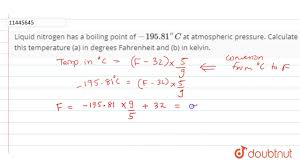 11445645
Liquid nitrogen has a boiling point of −195.81°C at atmospheric pressure. Calculate
this temperature (a) in degrees Fahrenheit and (b) in kelvin.
Temp. in °C = (F-32) × 5/9 ⇐ Conversion
from °C to F
-195.81°C = (F-32) × 5/9
F = -195.81 × 9/5 + 32 =
doubtnut